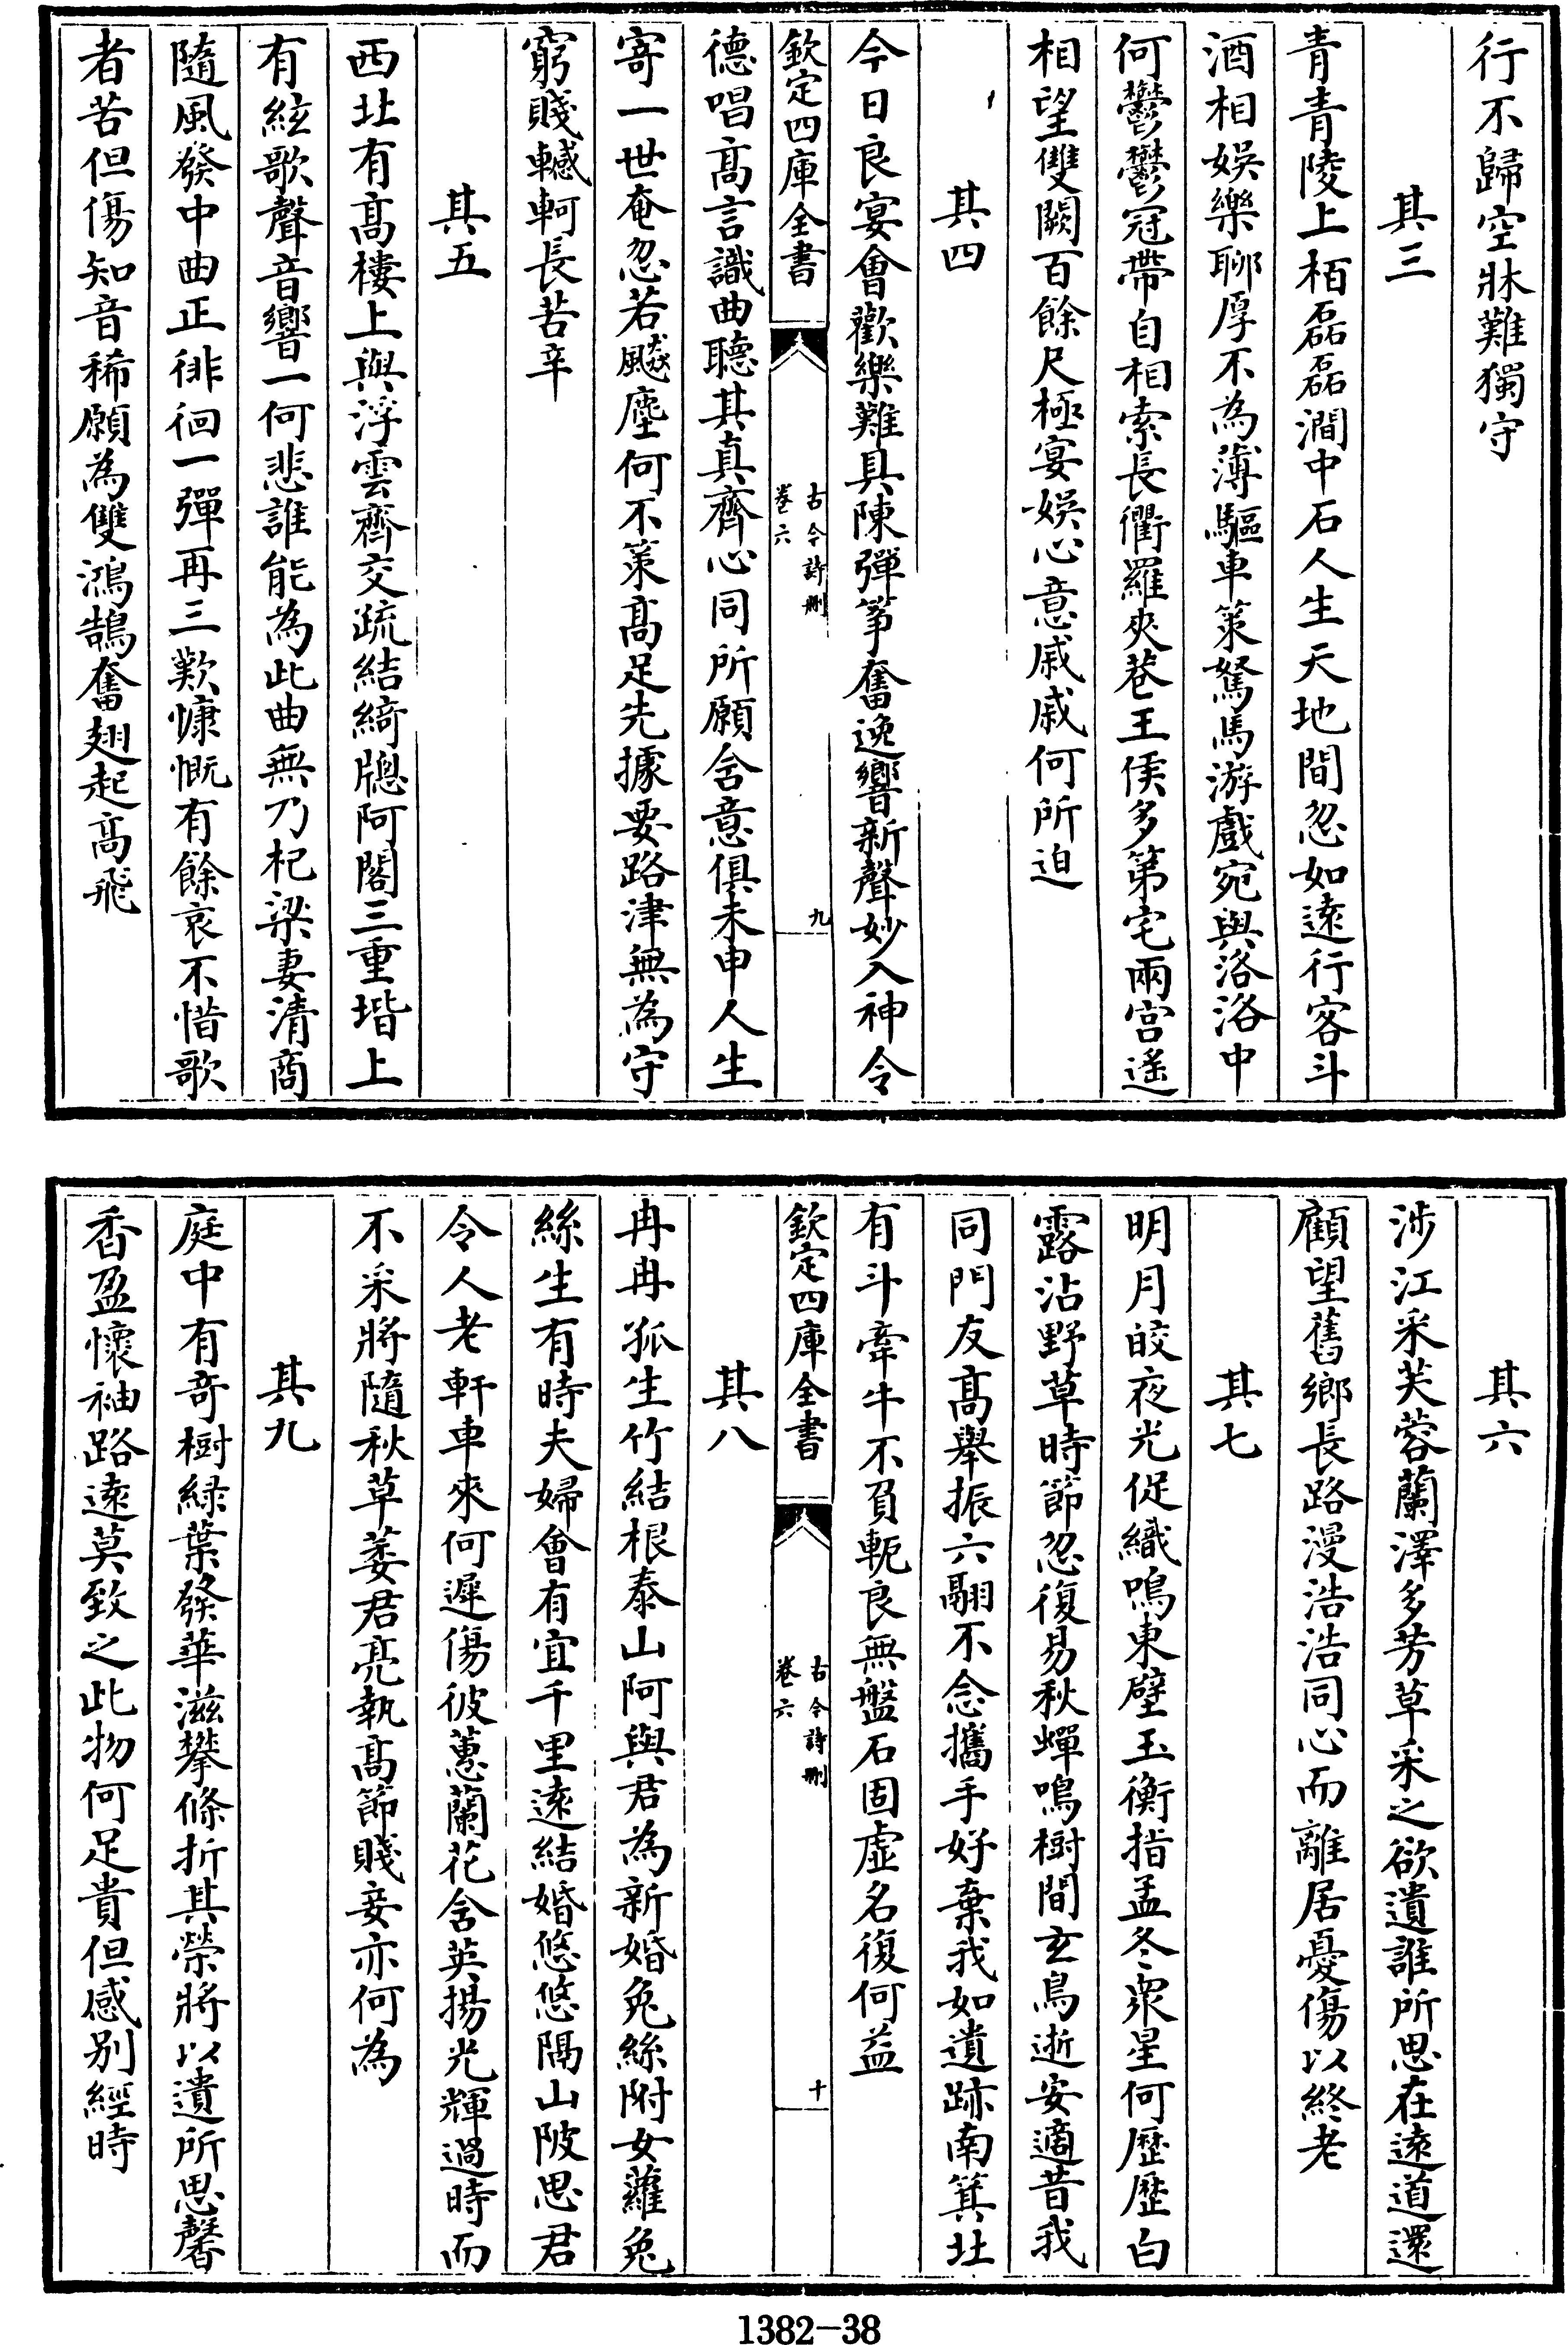 行不歸空牀難獨守
其三
青青陵上栢磊磊澗中石人生天地間忽如逺行客斗
酒相娯樂聊厚不為薄驅車策駑馬游戲宛與洛洛中
何鬱鬱冠帶自相索長衢羅夾巷王侯多第宅兩宫遥
相望雙闕百餘尺極宴娯心意戚戚何所迫
其四
今日良宴會歡樂難具陳彈筝奮逸響新聲妙入神令
欽定四庫全書
古今詩刪
卷六
九
德唱髙言識曲聽其真齊心同所願含意俱未申人生
寄一世奄忽若飈塵何不策髙足先據要路津無為守
窮賤轗軻長苦辛
其五
西北有髙樓上與浮雲齊交疏結綺牕阿閣三重堦上
有絃歌聲音響一何悲誰能為此曲無乃杞梁妻清商
隨風發中曲正徘徊一彈再三歎慷慨有餘哀不惜歌
者苦但傷知音稀願為雙鴻鵠奮翅起髙飛
其六
涉江采芙蓉蘭澤多芳草采之欲遺誰所思在逺道還
顧望舊鄉長路漫浩浩同心而離居憂傷以終老
其七
明月皎夜光促織鳴東壁玉衡指孟冬衆星何歴歴白
露沾野草時節忽復易秋蟬鳴樹間玄鳥逝安適昔我
同門友髙舉振六翮不念攜手好棄我如遺跡南箕北
有斗牽牛不負軛良無盤石固虚名復何益
欽定四庫全書
古今詩刪
卷六
十
其八
冉冉孤生竹結根泰山阿與君為新婚兔絲附女蘿兔
絲生有時夫婦會有宜千里逺結婚悠悠隔山陂思君
令人老軒車來何遲傷彼蕙蘭花含英揚光輝過時而
不采將隨秋草萎君亮執髙節賤妾亦何為
其九
庭中有竒樹緑葉發華滋攀條折其榮將以遺所思馨
香盈懷袖路逺莫致之此物何足貴但感别經時
1382-38